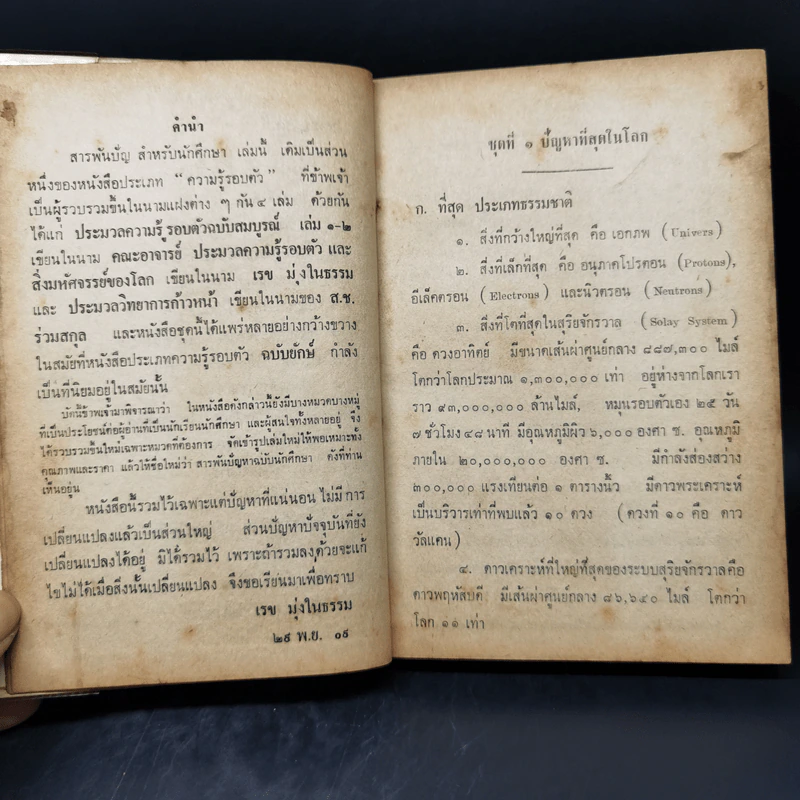 คำนำ
สารพันปัญ สำหรับนักศึกษา เล่มนี้ เดิมเป็นส่วน
หนึ่งของหนังสือประเภท “ความรู้รอบตัว” ที่ข้าพเจ้า
เป็นผู้รวบรวมขึ้นในนามแฝงต่าง ๆ กัน ๔ เล่ม ด้วยกัน
ได้แก่ ประมวลความรู้รอบตัวฉบับสมบูรณ์ เล่ม ๑-๒
เขียนในนาม คณะอาจารย์ ประมวลความรู้รอบตัว และ
สิ่งมหัศจรรย์ของโลก เขียนในนาม เรข มุ่งในธรรม
และ ประมวลวิทยาการก้าวหน้า เขียนในนามของ ส.ช.
ร่วมสกุล และหนังสือชุดนี้ได้แพร่หลายอย่างกว้างขวาง
ในสมัยที่หนังสือประเภทความรู้รอบตัว ฉบับยักษ์ กำลัง
เป็นที่นิยมอยู่ในสมัยนั้น
บัดนี้ข้าพเจ้ามาพิจารณาว่า ในหนังสือดังกล่าวนี้ยังมีบางหมวดบางหมู่
ที่เป็นประโยชน์ต่อผู้อ่านที่เป็นนักเรียนนักศึกษา และผู้สนใจทั้งหลายอยู่ จึง
ได้รวบรวมขึ้นใหม่เฉพาะหมวดที่ต้องการ จัดเข้ารูปเล่มใหม่ให้พอเหมาะทั้ง
คุณภาพและราคา แล้วให้ชื่อใหม่ว่า สารพันปัญหาฉบับนักศึกษา ดังที่ท่าน
เห็นอยู่นี้
หนังสือนี้รวมไว้เฉพาะแต่ปัญหาที่แน่นอน ไม่มีการ
เปลี่ยนแปลงแล้วเป็นส่วนใหญ่ ส่วนปัญหาปัจจุบันที่ยัง
เปลี่ยนแปลงได้อยู่ มิได้รวมไว้ เพราะถ้ารวมลงด้วยจะแก้
ไขไม่ได้เมื่อสิ่งนั้นเปลี่ยนแปลง จึงขอเรียนมาเพื่อทราบ
เรข มุ่งในธรรม
๒๕ พ.ย. ๐๕
ชุดที่ ๑ ปัญหาที่สุดในโลก
ก. ที่สุด ประเภทธรรมชาติ
๑. สิ่งที่กว้างใหญ่ที่สุด คือ เอกภพ (Univers)
๒. สิ่งที่เล็กที่สุด คือ อนุภาคโปรตอน (Protons),
อีเล็คตรอน (Electrons) และนิวตรอน (Neutrons)
๓. สิ่งที่โตที่สุดในสุริยจักรวาล (Solay System)
คือ ดวงอาทิตย์ มีขนาดเส้นผ่าศูนย์กลาง ๘๘๗,๓๐๐ ไมล์
โตกว่าโลกประมาณ ๑,๓๐๐,๐๐๐ เท่า อยู่ห่างจากโลกเรา
ราว ๙๓,๐๐๐,๐๐๐ ล้านไมล์, หมุนรอบตัวเอง ๒๕ วัน
๗ ชั่วโมง ๔๘ นาที มีอุณหภูมิผิว ๖,๐๐๐ องศา ซ. อุณหภูมิ
ภายใน ๒๐,๐๐๐,๐๐๐ องศา ซ. มีกำลังส่องสว่าง
๓๐๐,๐๐๐ แรงเทียนต่อ ๑ ตารางนิ้ว มีดาวพระเคราะห์
เป็นบริวารเท่าที่พบแล้ว ๑๐ ดวง (ดวงที่ ๑๐ คือ ดาว
วัลแคน)
๔. ดาวเคราะห์ที่ใหญ่ที่สุดของระบบสุริยจักรวาลคือ
ดาวพฤหัสบดี มีเส้นผ่าศูนย์กลาง ๘๖,๖๔๐ ไมล์ โตกว่า
โลก ๑๑ เท่า